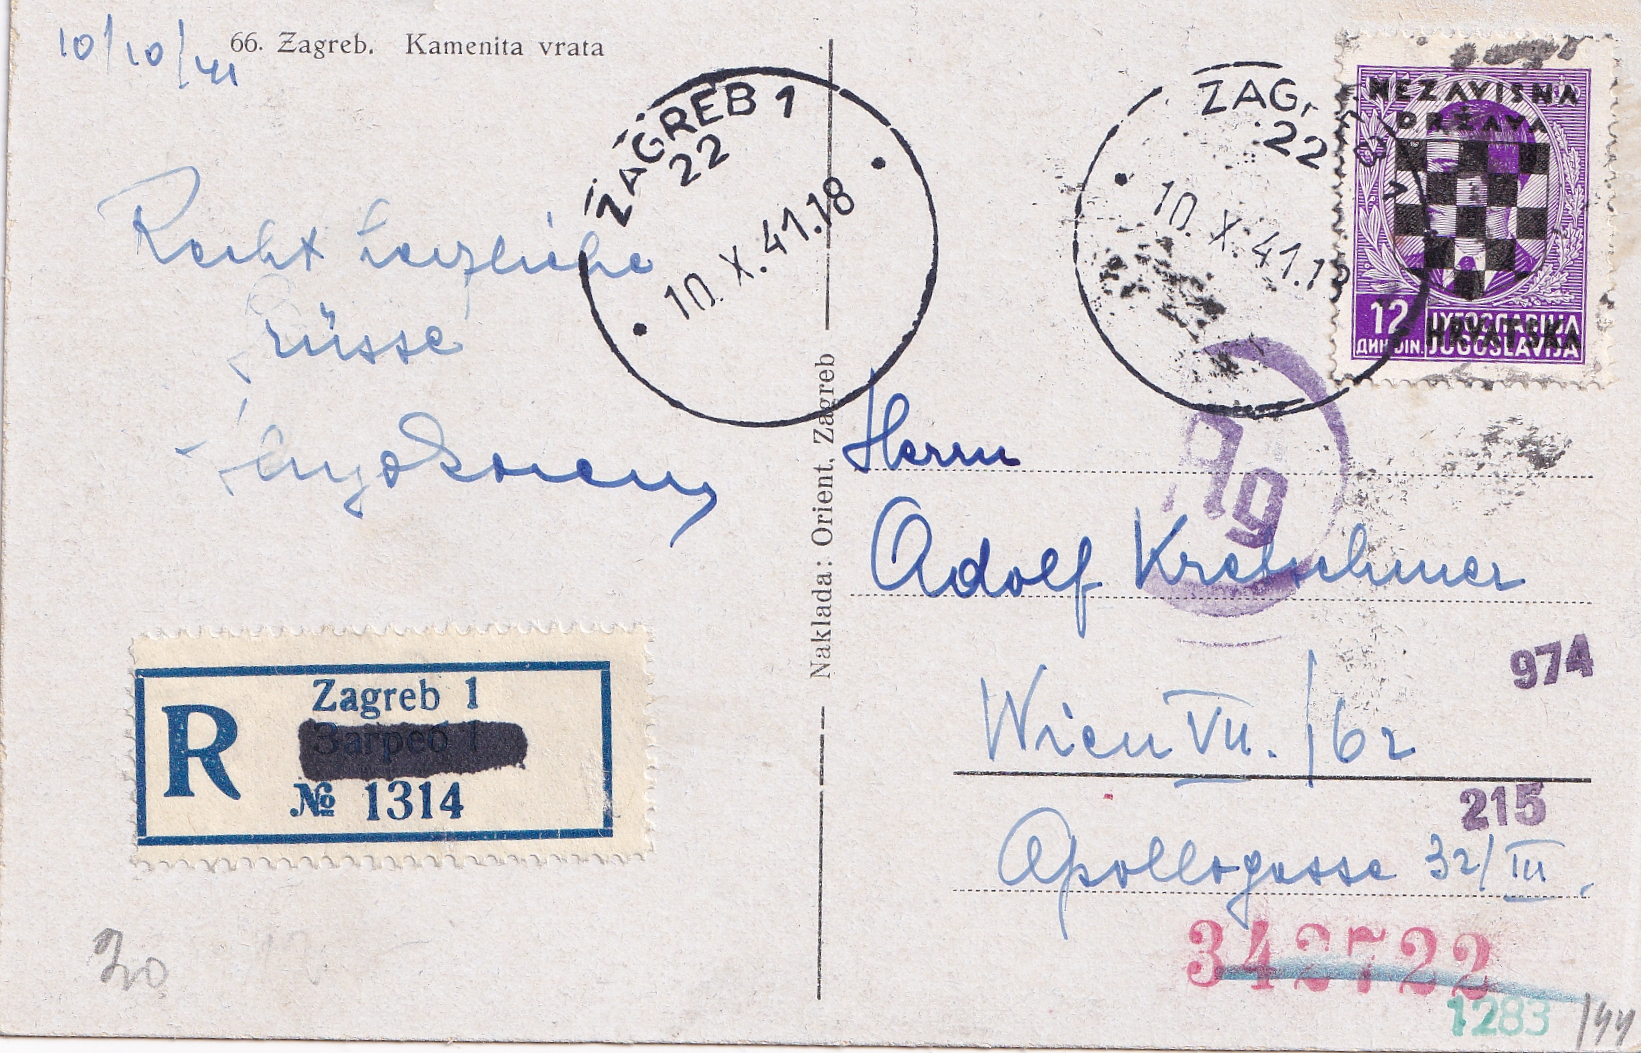 10/10/41
66. Zagreb. Kamenita vrata
ZAGREB 1
22
10. X. 41.18
ZAG
22
10. X. 41.1
NEZAVISNA
DRŽAVA
HRVATSKA
12
ДИН DIN.
JUGOSLAVIJA
Recht herzliche
Grüsse
Naklada: Orient, Zagreb
Herrn
Adolf Kretschmer
Wien VII. /62
Apollogasse 32/III.
Ag
974
215
R
Zagreb 1
Загреб 1
№ 1314
342722
1283
/44
20